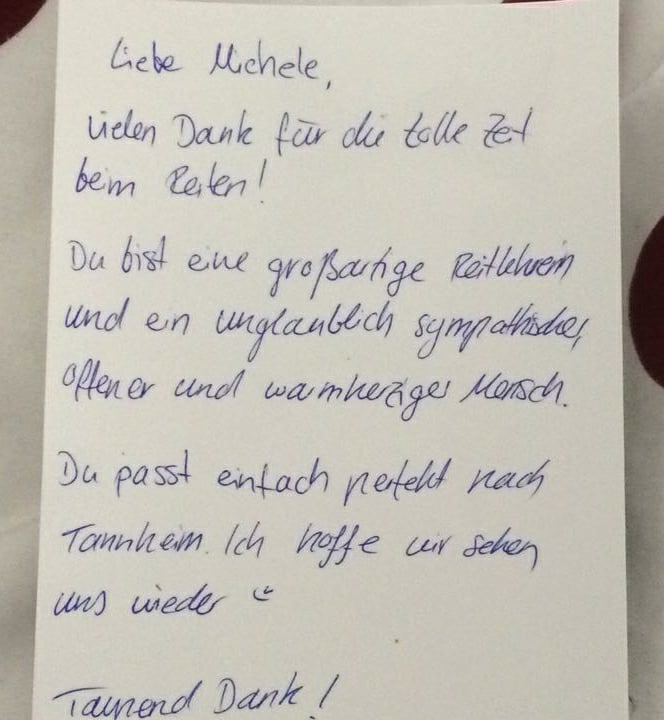 Liebe Michele,
vielen Dank für die tolle Zeit
beim Reiten!
Du bist eine großartige Reitlehrein
und ein unglaublich sympathischer,
offener und warmherziger Mensch.
Du passt einfach perfekt nach
Tannheim. Ich hoffe wir sehen
uns wieder ☺
Tausend Dank!